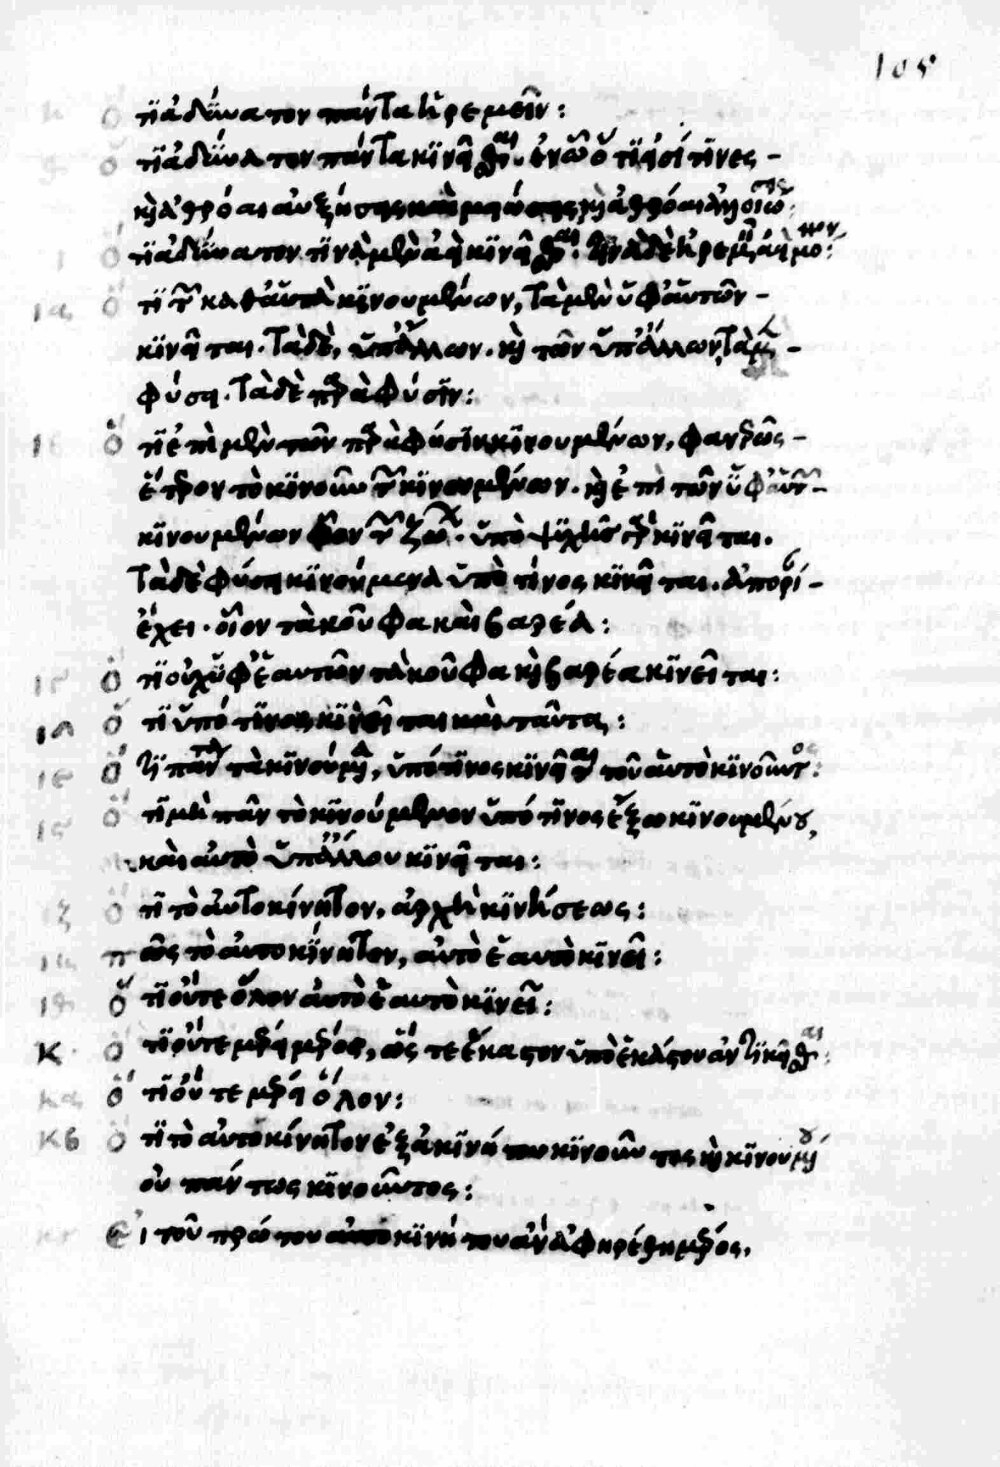 105
η Ὅτι ἀδύνατον πάντα ἠρεμεῖν:
θ Ὅτι ἀδύνατον πάντα κινεῖσθαι. ἐν ᾧ ὅτι εἰσί τινες
καὶ ἀθρόαι αὐξήσεις καὶ μειώσεις καὶ ἀθρόαι ἀλλοιώσεις:
ι Ὅτι ἀδύνατον τινὰ μὲν ἀεὶ κινεῖσθαι. τινὰ δὲ ἠρεμεῖν
ια Ὅτι τῶν καθ' αὑτὰ κινουμένων, τὰ μὲν ὑφ' αὑτῶν
κινεῖται. τὰ δὲ, ὑπ' ἄλλων. καὶ τῶν ὑπ' ἄλλων, τὰ μὲν
φύσει. τὰ δὲ παρὰ φύσιν:
ιβ Ὅτι ἐπὶ μὲν τῶν παρὰ φύσιν κινουμένων, φανερῶς
ἕτερον τὸ κινοῦν τῶν κινουμένων. καὶ ἐπὶ τῶν ὑφ' αὑτῶν
κινουμένων οἷον τῶν ζώων. ὑπὸ ψυχῆς γὰρ κινεῖται.
τὰ δὲ φύσει κινούμενα ὑπὸ τίνος κινεῖται. ἀπορίαν
ἔχει. οἷον τὰ κοῦφα καὶ βαρέα:
ιγ Ὅτι οὐχ ὑφ' ἑαυτῶν τὰ κοῦφα καὶ βαρέα κινεῖται:
ιδ Ὅτι ὑπό τινος κινεῖται καὶ ταῦτα:
ιε Ὅτι πάντα τὰ κινούμενα, ὑπό τινος κινεῖται τοῦ αὐτὸ κινοῦντος:
ις Ὅτι μὴ πᾶν τὸ κινούμενον ὑπό τινος ἔξω κινουμένου,
καὶ αὐτὸ ὑπ' ἄλλου κινεῖται:
ιζ Ὅτι τὸ αὐτοκίνητον, ἀρχὴ κινήσεως:
ιη πῶς τὸ αὐτοκίνητον, αὐτὸ ἑαυτὸ κινεῖ:
ιθ Ὅτι οὔτε ὅλον αὐτὸ ἑαυτὸ κινεῖ:
κ Ὅτι οὔτε μέρη μέρος, ὥστε ἕκαστον ὑπὸ ἑκάστου ἀντικινεῖσθαι:
κα Ὅτι οὔτε μέρη ὅλον:
κβ Ὅτι τὸ αὐτοκίνητον ἐξ ἀκινήτου κινοῦντος καὶ κινουμένου
οὐ πάντως κινοῦντος:
κγ Εἰ τοῦ πρώτου αὐτοκινήτου ἀναφῃρέθη μέρος.